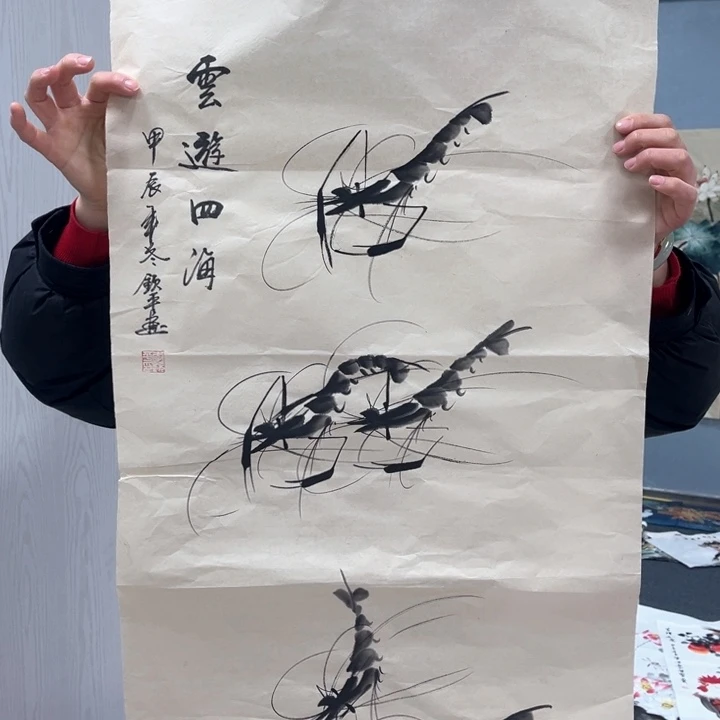 雲遊四海
甲辰年冬欽平畫